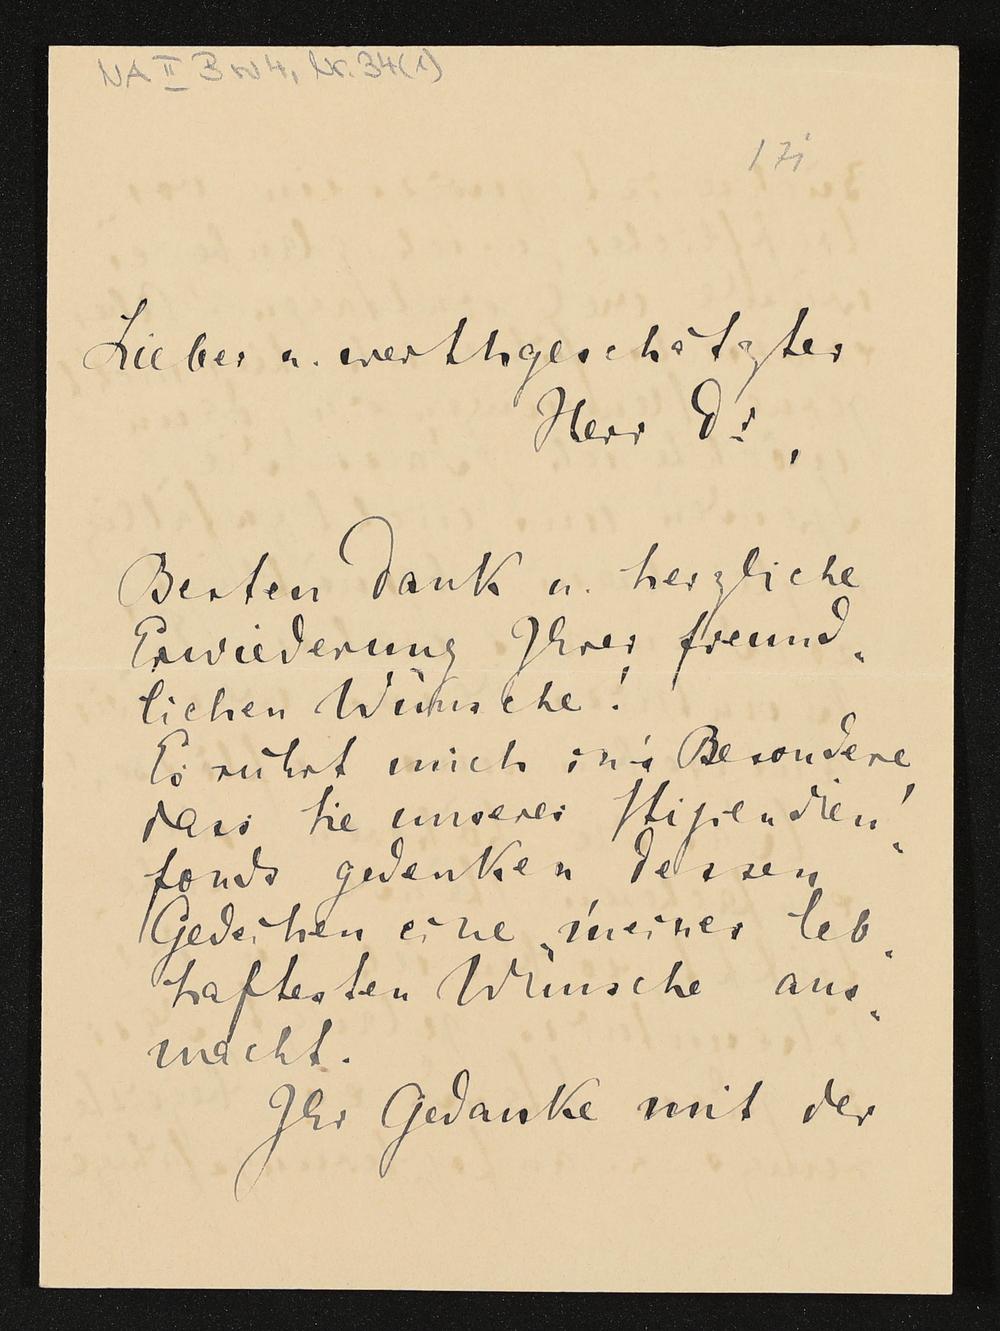 NA II B N4, Nr. 34(1)
17i
Lieber u. werthgeschätzter
Herr Dr.,
Besten Dank u. herzliche
Erwiederung Ihrer freund-
lichen Wünsche!
Es rührt mich in's Besondere,
dass Sie unseres Stipendien-
fonds gedenken dessen
Gedeihen eine meiner leb-
haftesten Wünsche aus-
macht.
Ihr Gedanke mit der